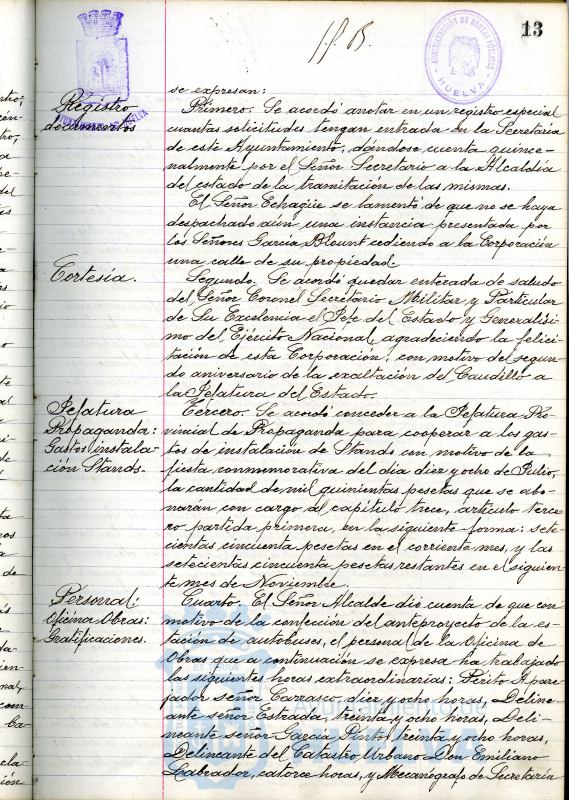 13
ADMINISTRACIÓN DE RENTAS PÚBLICAS
HUELVA
AYUNTAMIENTO DE HUELVA
Registro
documentos
se expresan:
Primero. Se acordó anotar en un registro especial
cuantas solicitudes tengan entrada en la Secretaría
de este Ayuntamiento, dándose cuenta quince-
nalmente por el Señor Secretario a la Alcaldía
del estado de la tramitación de las mismas.
El Señor Echagüe se lamentó de que no se haya
despachado aún una instancia presentada por
los Señores García Blount cediendo a la Corporación
una calle de su propiedad.
Cortesía.
Segundo. Se acordó quedar enterada de saludo
del Señor Coronel Secretario Militar y Particular
de Su Excelencia el Jefe del Estado y Generalísi-
mo del Ejército Nacional, agradeciendo la felici-
tación de esta Corporación, con motivo del segun-
do aniversario de la exaltación del Caudillo a
la Jefatura del Estado.
Jefatura
Propaganda:
Gastos instala-
ción Stands.
Tercero. Se acordó conceder a la Jefatura Pro-
vincial de Propaganda para cooperar a los gas-
tos de instalación de Stands con motivo de la
fiesta conmemorativa del día diez y ocho de Julio,
la cantidad de mil quinientas pesetas que se abo-
narán con cargo al capítulo trece, artículo terce-
ro partida primera, en la siguiente forma: sete-
cientas cincuenta pesetas en el corriente mes, y las
setecientas cincuenta pesetas restantes en el siguien-
te mes de Noviembre.
Personal:
Oficina Obras:
Gratificaciones.
Cuarto. El Señor Alcalde dió cuenta de que con
motivo de la confección del anteproyecto de la es-
tación de autobuses, el personal de la Oficina de
Obras que a continuación se expresa ha trabajado
las siguientes horas extraordinarias: Perito Apare-
jador señor Carrasco, diez y ocho horas, Deline-
ante señor Estrada, treinta y ocho horas, Deli-
neante señor García Pintos treinta y ocho horas,
Delineante del Catastro Urbano Don Emiliano
Labrador, catorce horas, y Mecanógrafo de Secretaría
Ayuntamiento de
HUELVA